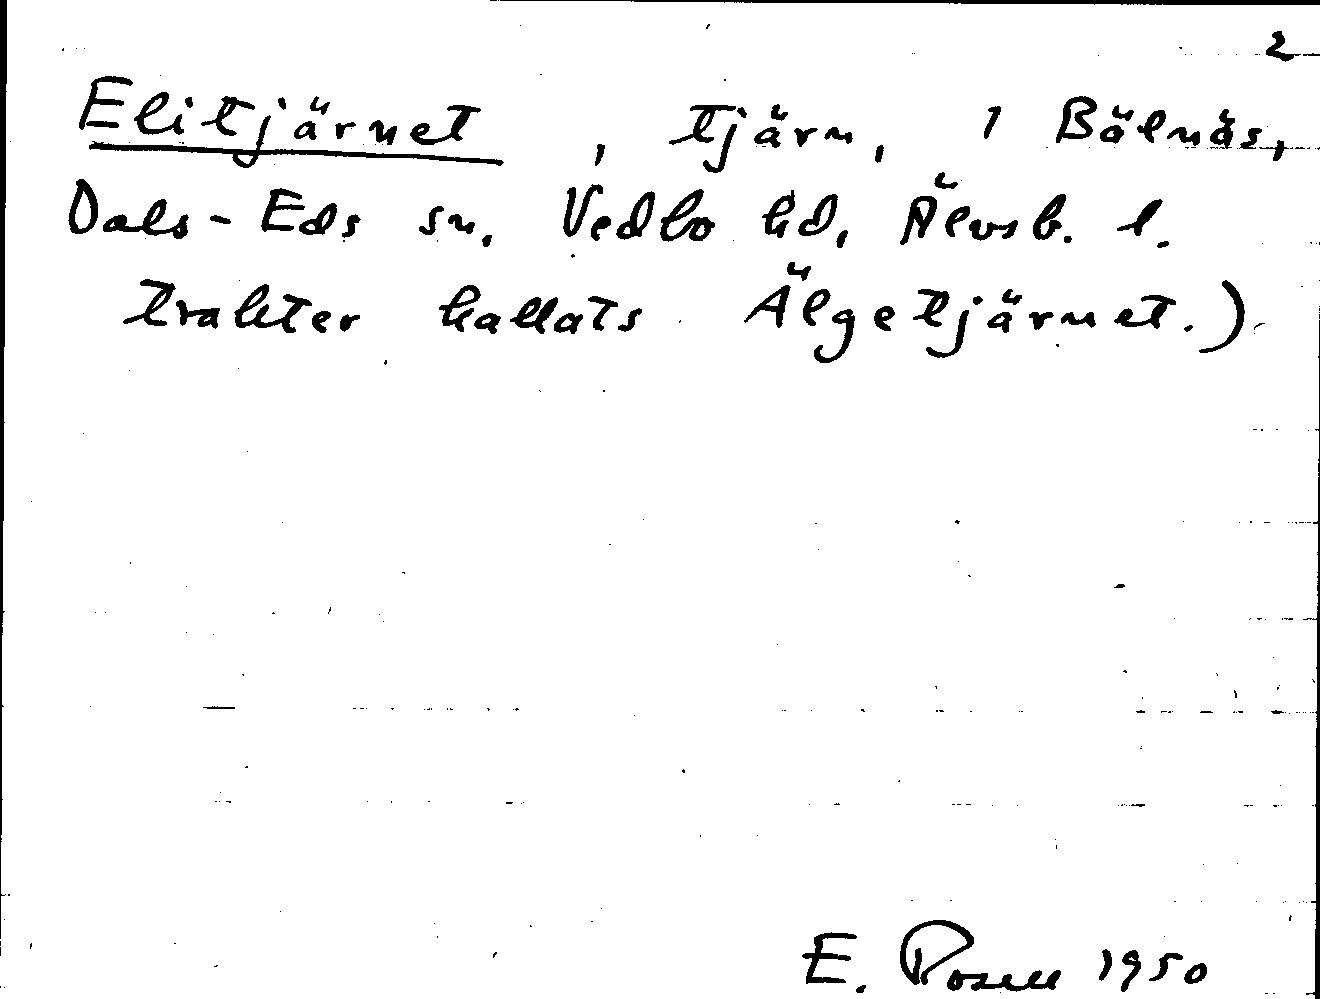 2
Elitjärnet, tjärn, 1 Bälnäs,
Dals-Eds sn, Vedbo hd, Älvsb. l.
trakter kallats Älgetjärnet.)
E. Rosell 1950